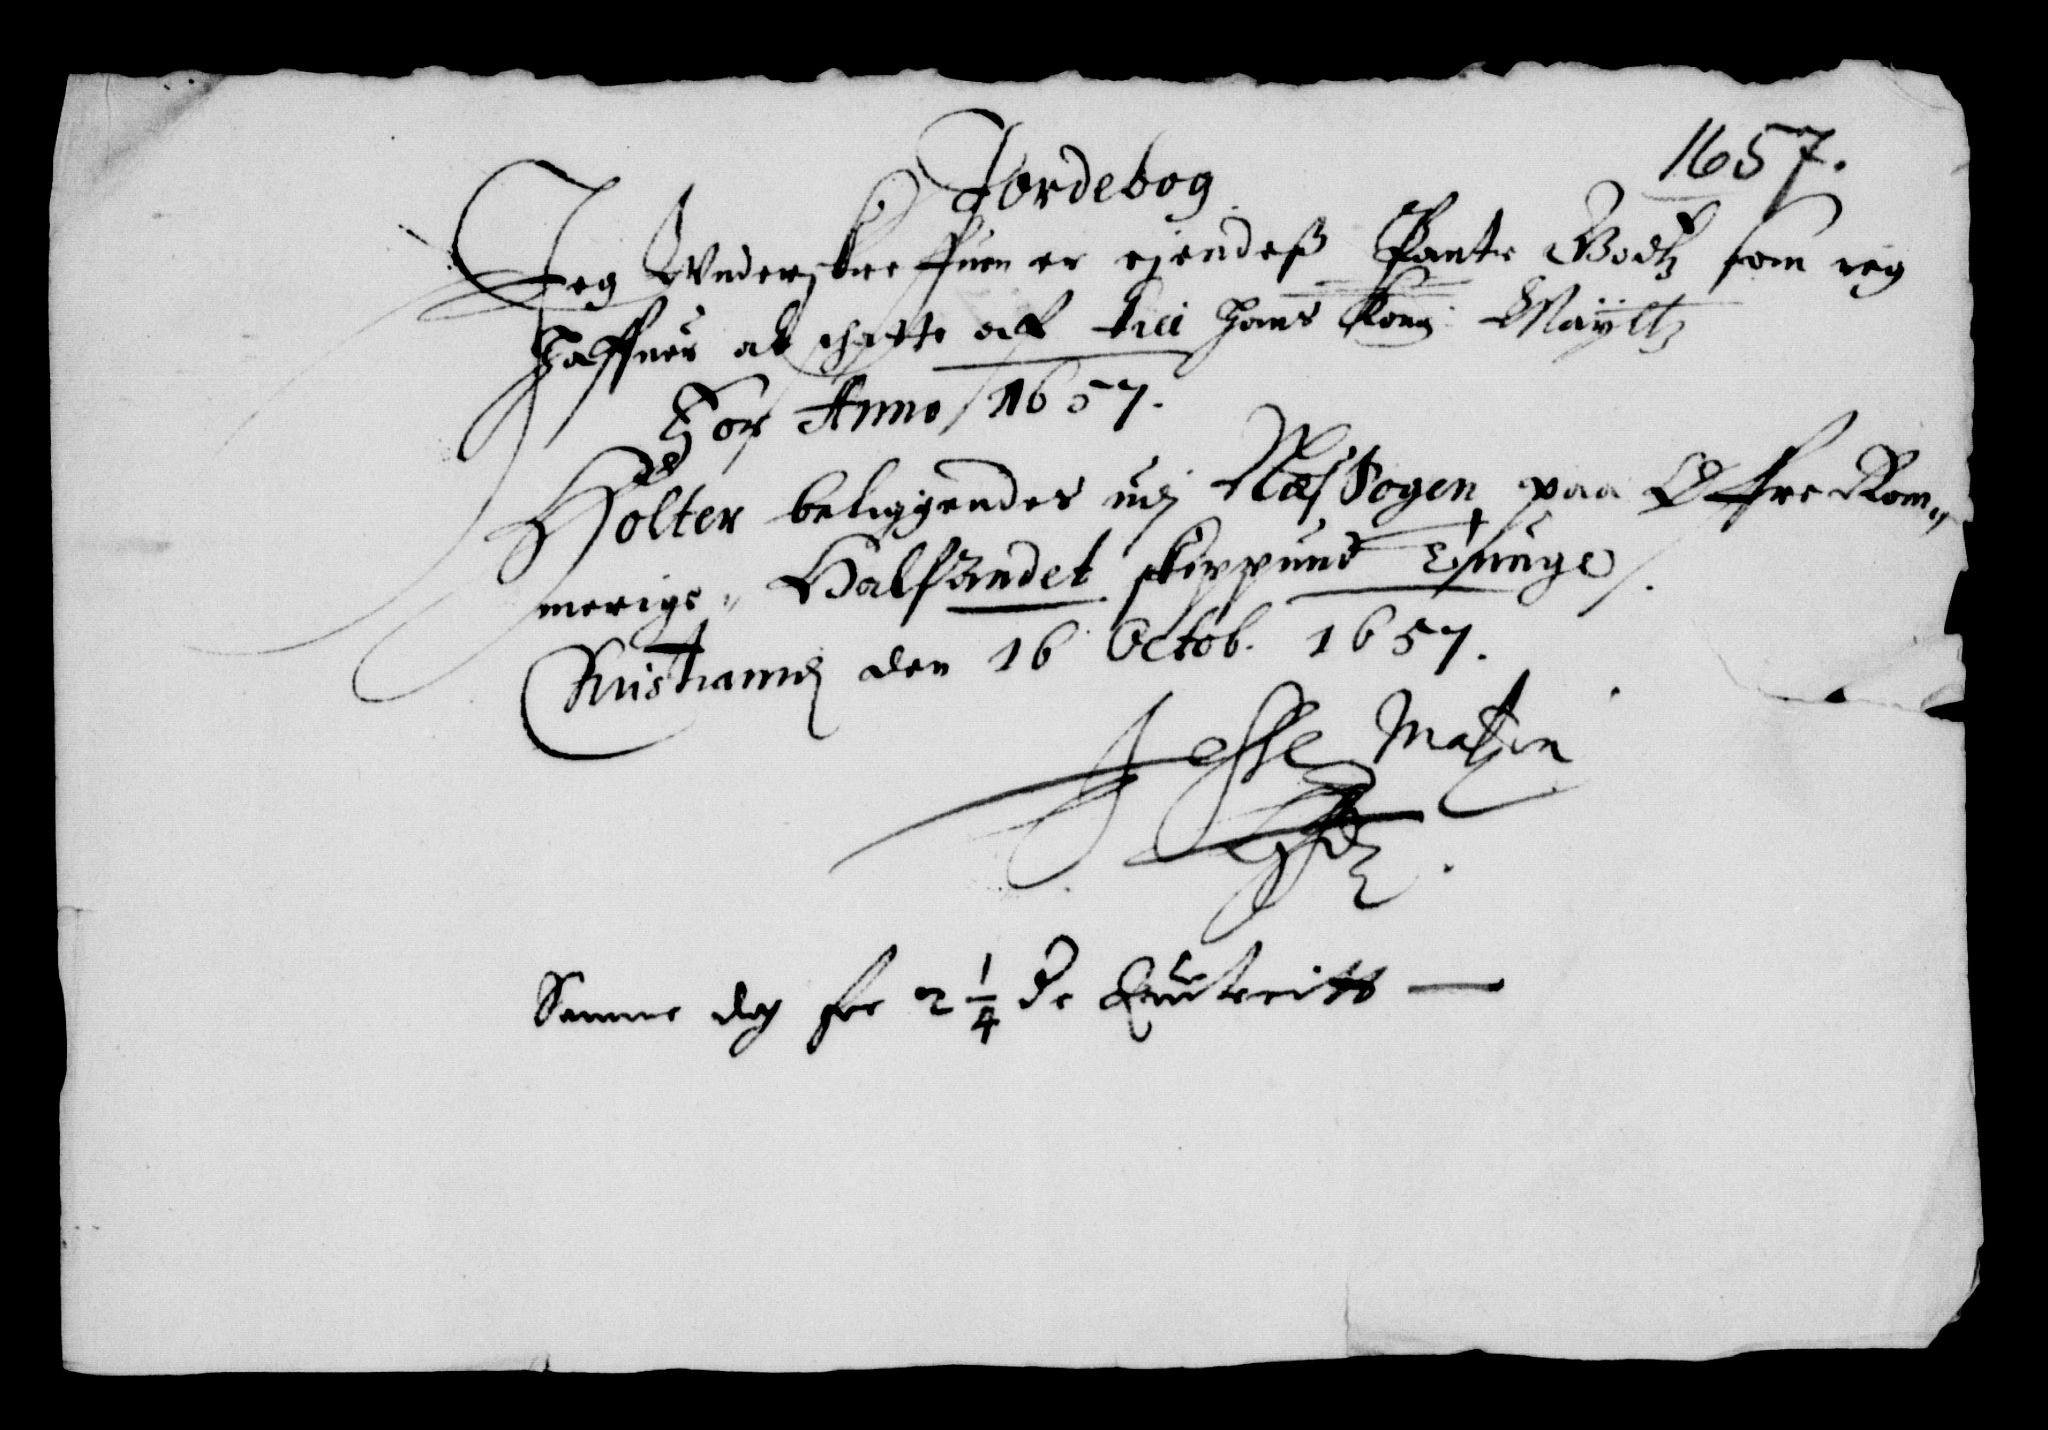 1657.
Jordebog
Jeg Wnderskreffuen er ejendeß Pante Godtz som ieg
Haffuer at schatte aff till Hans Kong: Mayttz
For Anno 1657.
Holter beliggendes udj Næs Sogen paa Øffre Rom„
merige„ Halfandet skippund Tunge.
Christiania den 16 Octob. 1657.
Jesse Matzen
Samme dag for 2 1/4 dr Quiterit —